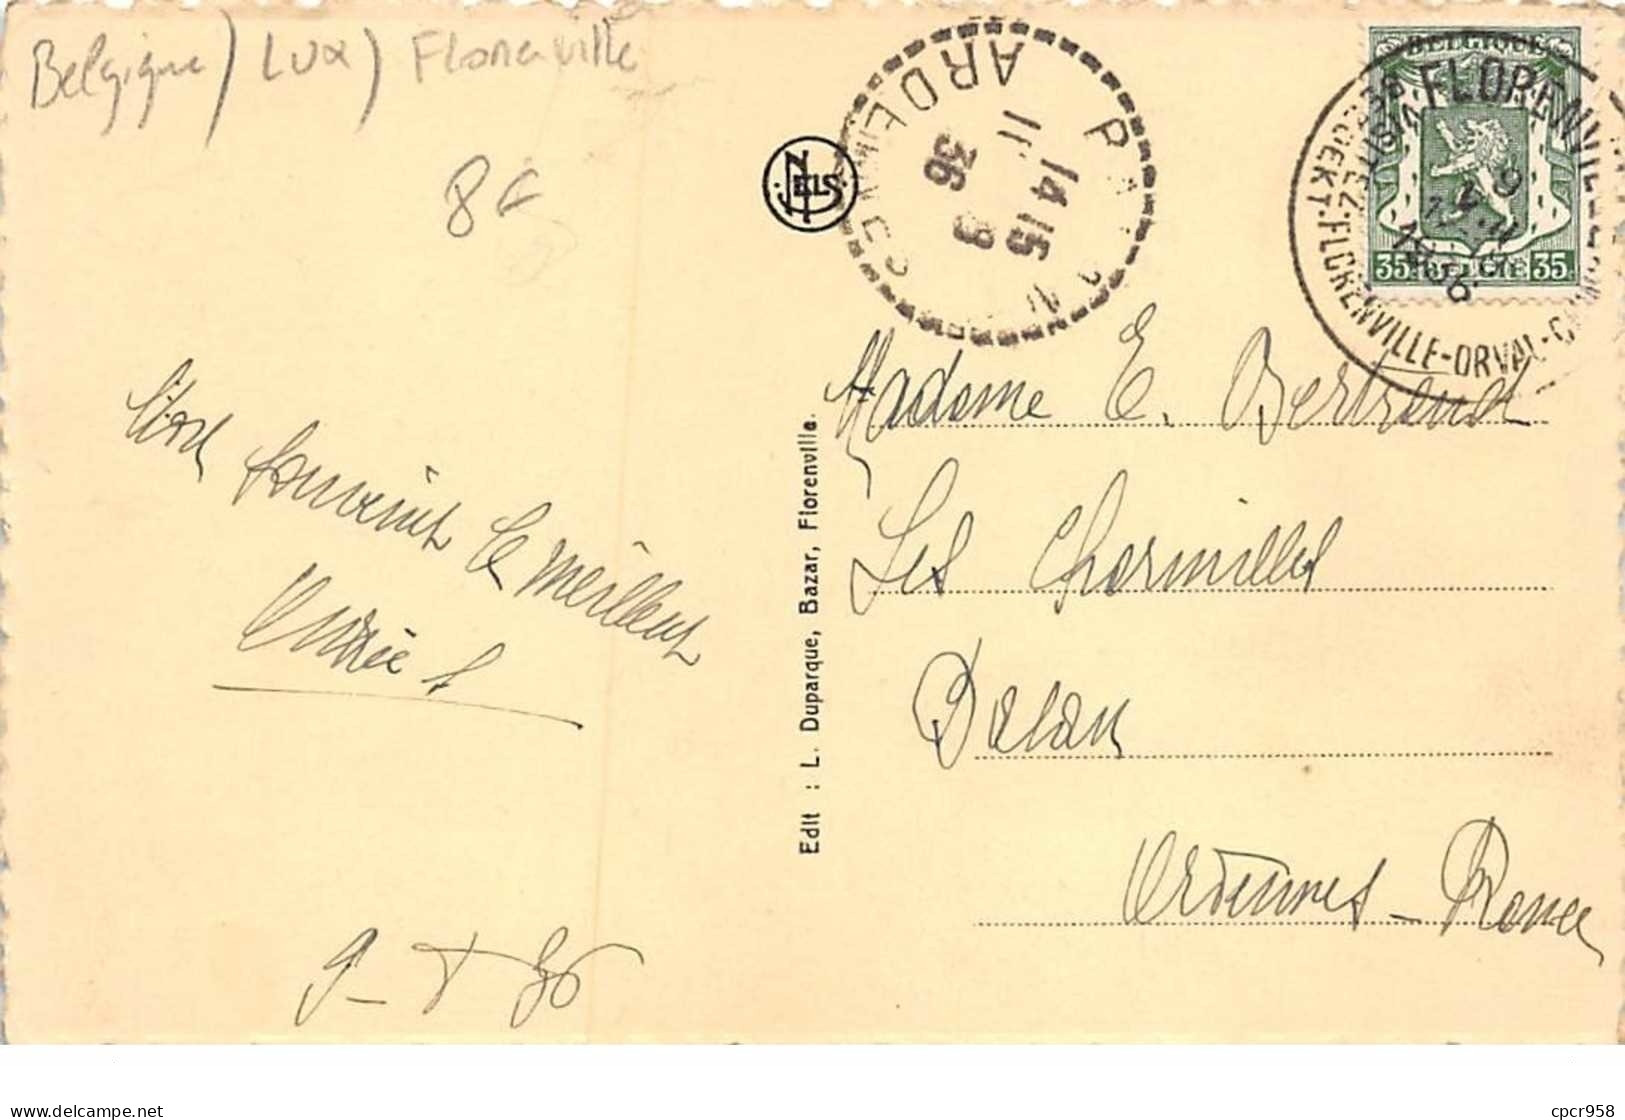 Belgique) Lux) Florenville
8€
NELS
ARDENNES
14 15
11 8
36
BELGIQUE
35 BELGIE 35
FLORENVILLE
VISITEZ-FLORENVILLE-ORVAL-
BEZOEKT
1936
souvenirs &
meilleurs
9-8 36
Edit : L. Duparque, Bazar, Florenville.
Madame E. Bertrand
Les Charmilles
Balan
Ardennes - France
delcampe.net
cpcr958